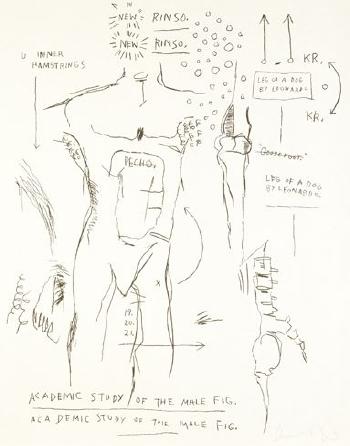 NEW RINSO.
NEW RINSO.
U INNER
HAMSTRINGS
KR.
LEG OF A DOG
BY LEONARDO
KR.
PECHO.
"Goose foot."
LEG OF A DOG
BY LEONARDO
X
19.
20.
21.
ACADEMIC STUDY OF THE MALE FIG.
ACADEMIC STUDY OF THE MALE FIG.